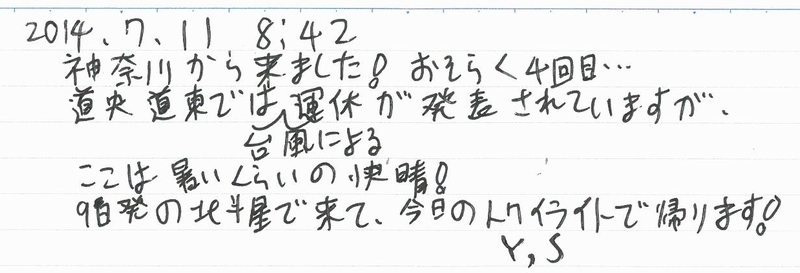 2014.7.11 8:42
神奈川から来ました! おそらく4回目…
道央 道東では運休が発表されていますが、
台風による
ここは暑いくらいの快晴!
9日発の北斗星で来て、今日のトワイライトで帰ります!
Y,S